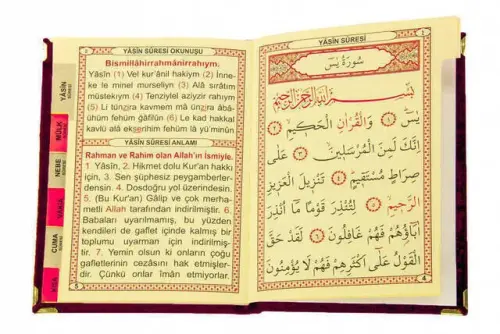 YÂSİN SÛRESİ OKUNUŞU
Bismillâhirrahmânirrahıym.
Yâsîn (1) Vel kur'ânil hakiym (2) İnne-
ke le minel murseliyn (3) Alâ sıratım
müstekıym (4) Tenziylel aziyzir rahıym
(5) Li tünzira kavmem mâ ünzira âbâ-
ühum fehüm gâfilûn (6) Le kad hakkal
kavlü alâ ekserihim fehüm lâ yü'minûn
YÂSİN SÛRESİ ANLAMI
Rahman ve Rahim olan Allah'ın İsmiyle.
1. Yâsîn, 2. Hikmet dolu Kur'an hakkı
için, 3. Sen şüphesiz peygamberler-
densin. 4. Dosdoğru yol üzerindesin.
5. (Bu Kur'an) Gâlip ve çok merha-
metli Allah tarafından indirilmiştir. 6.
Babaları uyarılmamış, bu yüzden
kendileri de gaflet içinde kalmış bir
toplumu uyarman için indirilmiş-
tir. 7. Yemin olsun ki onların çoğu
gafletlerinin cezasını hak etmişler-
dir. Çünkü onlar iman etmiyorlar.
5
YÂSİN
SÛRESİ
MÜLK
NEBE
VAKIA
CUMA
KISA
YÂSİN SÛRESİ
سُورَةُ يٰسٓ
بِسْمِ اللهِ الرَّحْمٰنِ الرَّحِيمِ
يٰسٓ ﴿١﴾ وَالْقُرْاٰنِ الْحَكِيمِ ﴿٢﴾
اِنَّكَ لَمِنَ الْمُرْسَلِينَ ﴿٣﴾ عَلٰى
صِرَاطٍ مُسْتَقِيمٍ ﴿٤﴾ تَنْزِيلَ الْعَزِيزِ
الرَّحِيمِ ﴿٥﴾ لِتُنْذِرَ قَوْمًا مَٓا اُنْذِرَ
اٰبَٓاؤُهُمْ فَهُمْ غَافِلُونَ ﴿٦﴾ لَقَدْ حَقَّ
الْقَوْلُ عَلٰٓى اَكْثَرِهِمْ فَهُمْ لَا يُؤْمِنُونَ
4